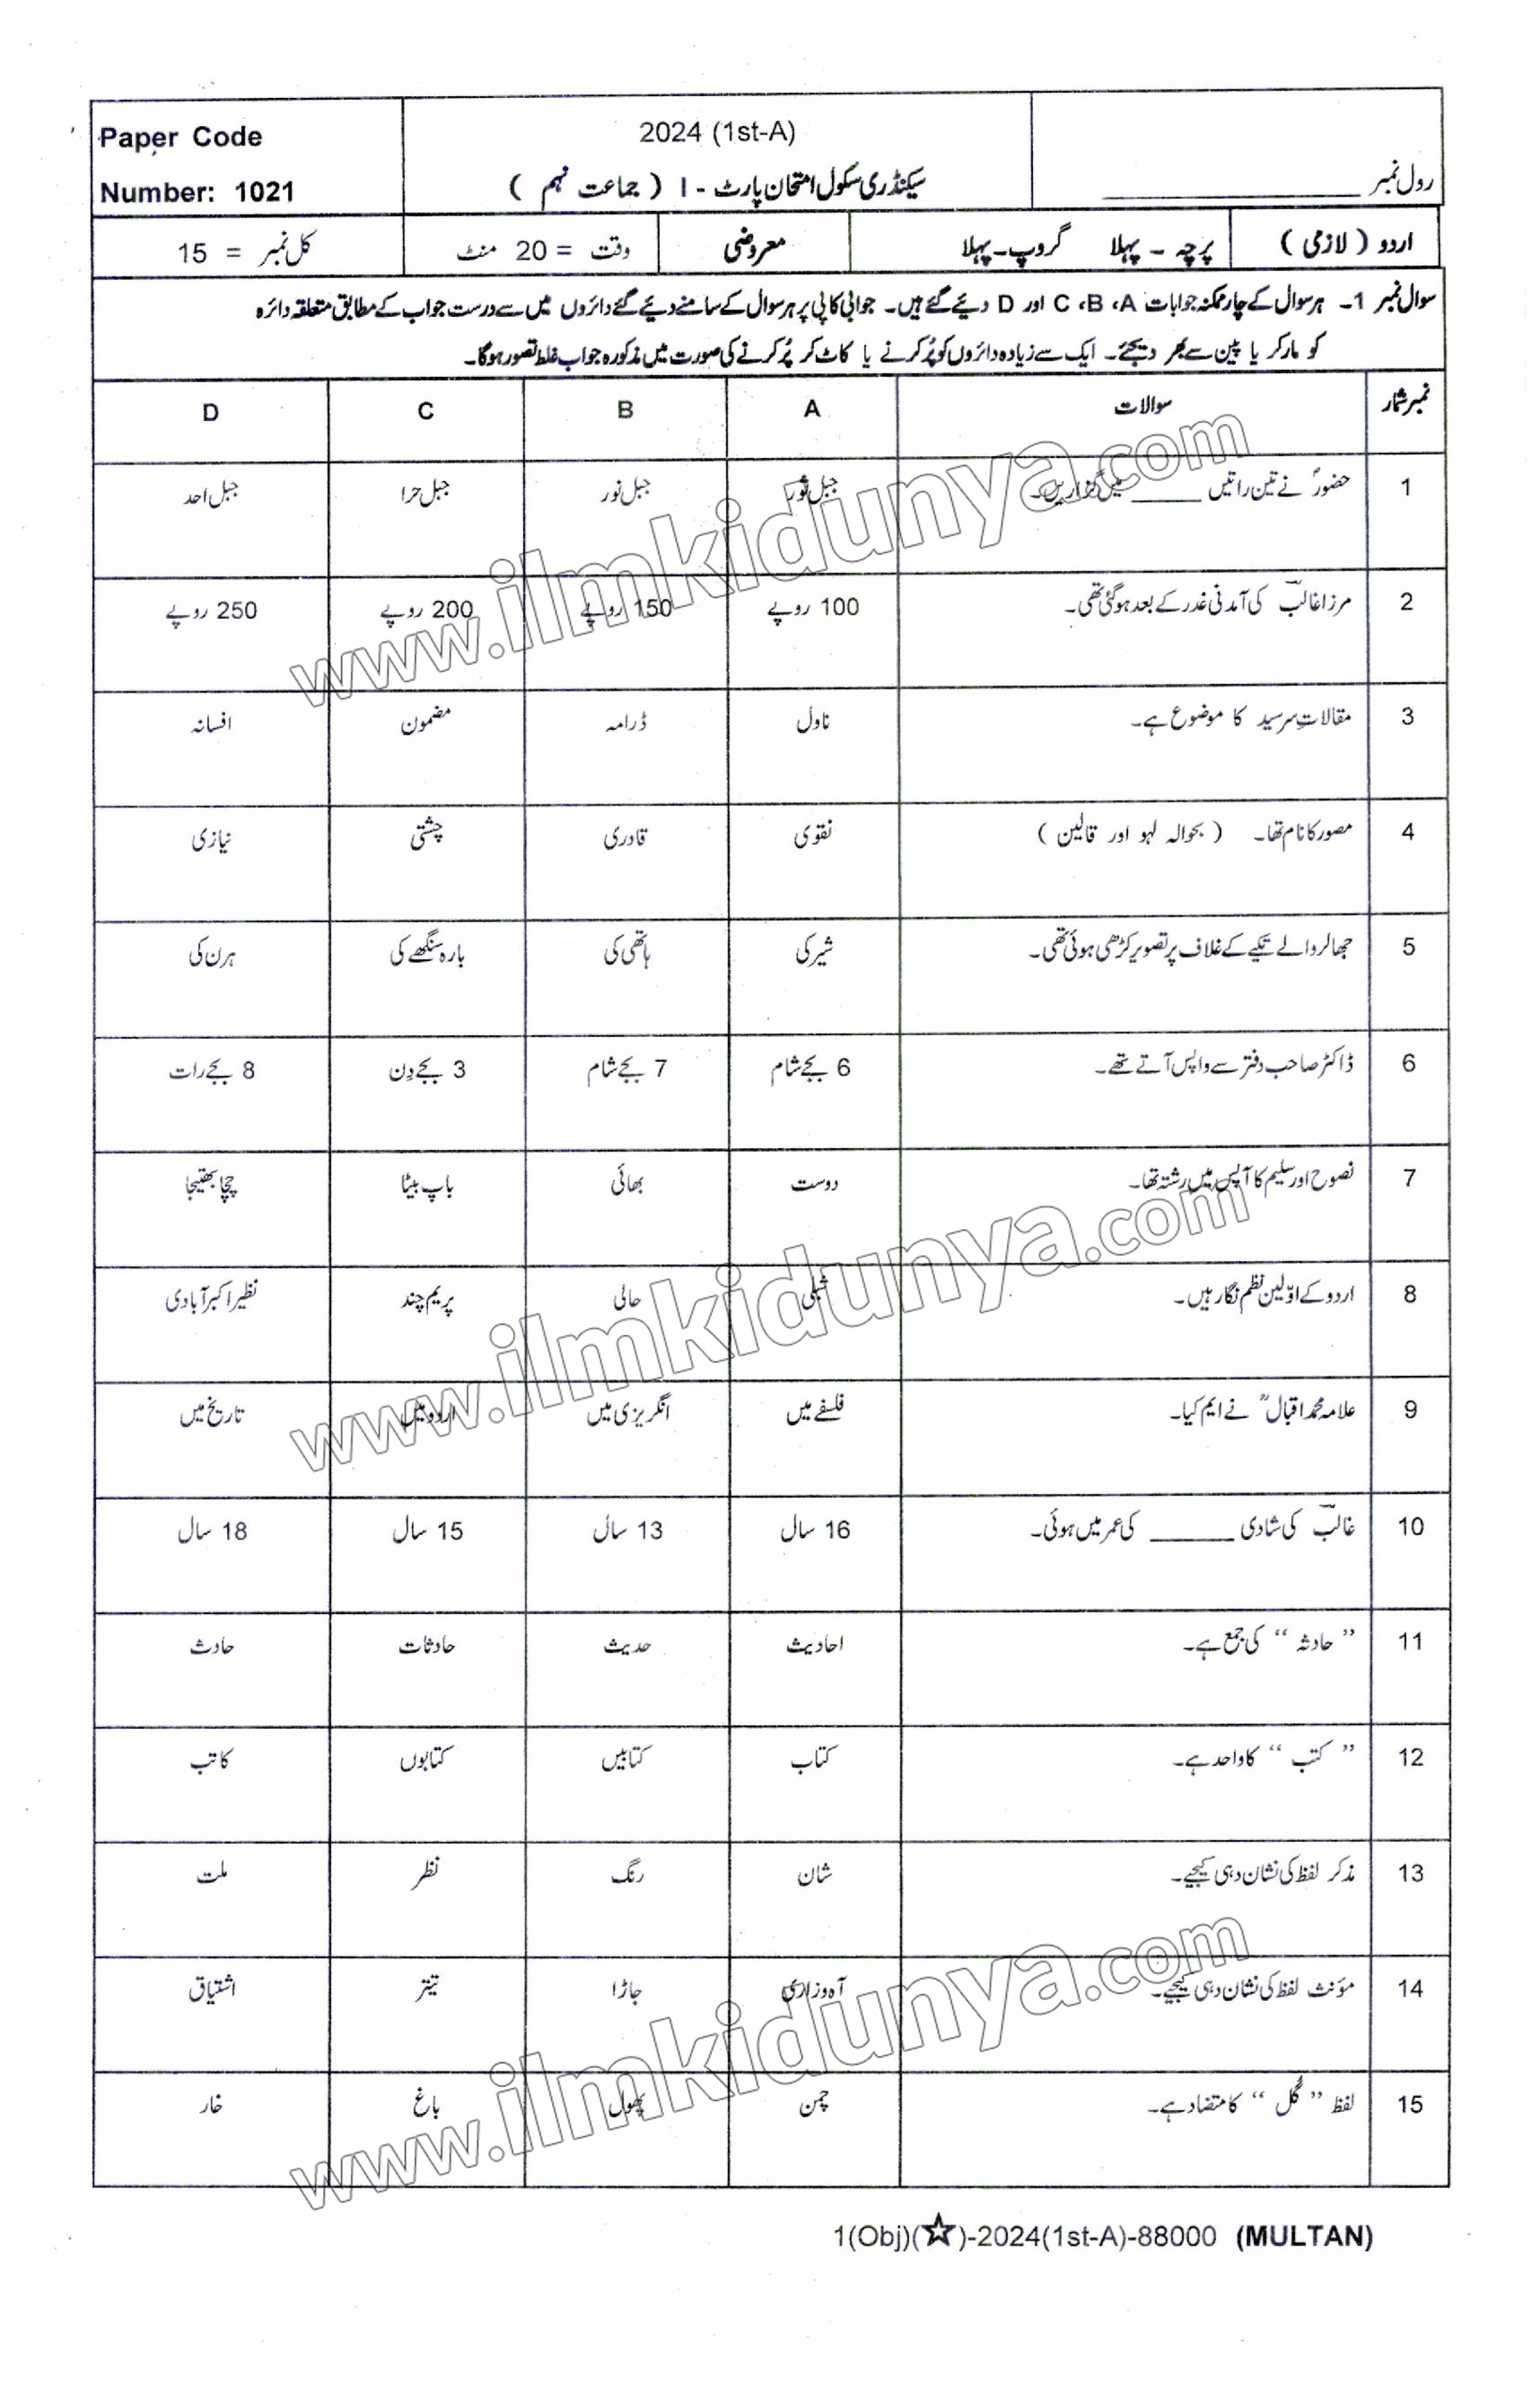 Paper Code
Number: 1021
2024 (1st-A)
سیکنڈری سکول امتحان پارٹ - I ( جماعت نہم )
رول نمبر ____________
اردو ( لازمی ) پرچہ - پہلا گروپ - پہلا معروضی وقت = 20 منٹ کل نمبر = 15
سوال نمبر 1- ہر سوال کے چار ممکنہ جوابات A، B، C اور D دیئے گئے ہیں۔ جوابی کاپی پر ہر سوال کے سامنے دیئے گئے دائروں میں سے درست جواب کے مطابق متعلقہ دائرہ
کو مارکر یا پین سے بھر دیجئے۔ ایک سے زیادہ دائروں کو پُر کرنے یا کاٹ کر پُر کرنے کی صورت میں مذکورہ جواب غلط تصور ہوگا۔
نمبر شمار سوالات A B C D
1 حضورؐ نے تین راتیں ______ میں گزاریں۔ جبل ثور جبل نور جبل حرا جبل احد
2 مرزا غالبؔ کی آمدنی غدر کے بعد ہو گئی تھی۔ 100 روپے 150 روپے 200 روپے 250 روپے
3 مقالاتِ سرسید کا موضوع ہے۔ ناول ڈرامہ مضمون افسانہ
4 مصور کا نام تھا۔ ( بحوالہ لہو اور قالین ) نقوی قادری چشتی نیازی
5 جھالر والے تکیے کے غلاف پر تصویر کڑھی ہوئی تھی۔ شیر کی ہاتھی کی بارہ سنگھے کی ہرن کی
6 ڈاکٹر صاحب دفتر سے واپس آتے تھے۔ 6 بجے شام 7 بجے شام 3 بجے دِن 8 بجے رات
7 نصوح اور سلیم کا آپس میں رشتہ تھا۔ دوست بھائی باپ بیٹا چچا بھتیجا
8 اردو کے اوّلین نظم نگار ہیں۔ شبلی حالی پریم چند نظیر اکبر آبادی
9 علامہ محمد اقبالؒ نے ایم کیا۔ فلسفے میں انگریزی میں اردو میں تاریخ میں
10 غالبؔ کی شادی ______ کی عمر میں ہوئی۔ 16 سال 13 سال 15 سال 18 سال
11 ” حادثہ “ کی جمع ہے۔ احادیث حدیث حادثات حادث
12 ” کتب “ کا واحد ہے۔ کتاب کتابیں کتابوں کاتب
13 مذکر لفظ کی نشان دہی کیجیے۔ شان رنگ نظر ملت
14 مؤنث لفظ کی نشان دہی کیجیے۔ آہ و زاری جاڑا تیتر اشتیاق
15 لفظ ” گُل “ کا متضاد ہے۔ چمن پھول باغ خار
1(Obj)(☆)-2024(1st-A)-88000 (MULTAN)
www.ilmkidunya.com
www.ilmkidunya.com
www.ilmkidunya.com